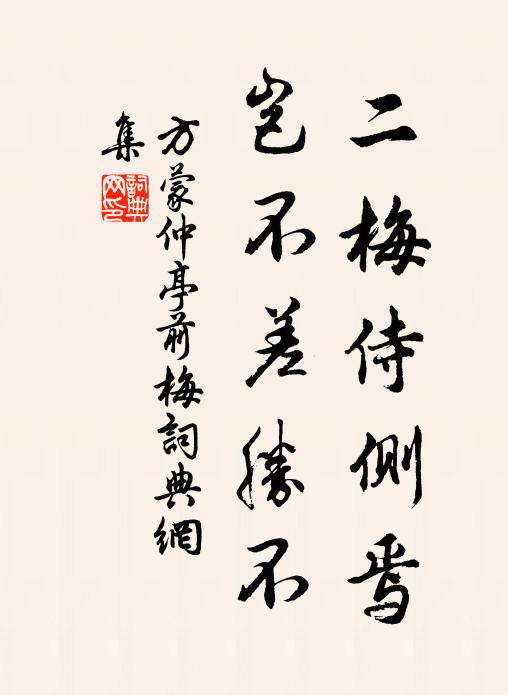 二梅侍側焉
豈不差勝不
方蒙仲亭前梅詞典網
集
詞典網印